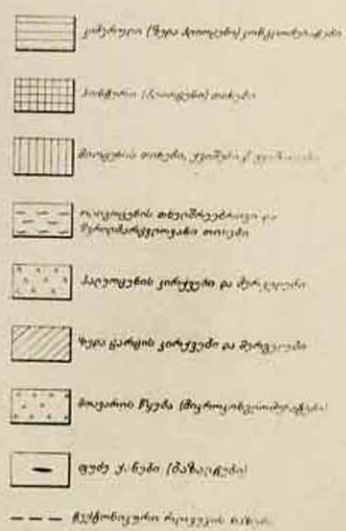 კიმერიული (ზედა პლიოცენი) კონგლომერატები
პონტური (პლიოცენი) თიხები
მიოცენის თიხები, ქვიშები
ოლიგოცენის თხელშრეებრივი და
თიხები
პალეოცენის კირქვები და მერგელები
ზედა ცარცის კირქვები და მერგელები
მთავარის წყება (მიკროკონგლომერატები)
ფუძე ქანები (ბაზალტები)
ტექტონიკური რღვევის ხაზები